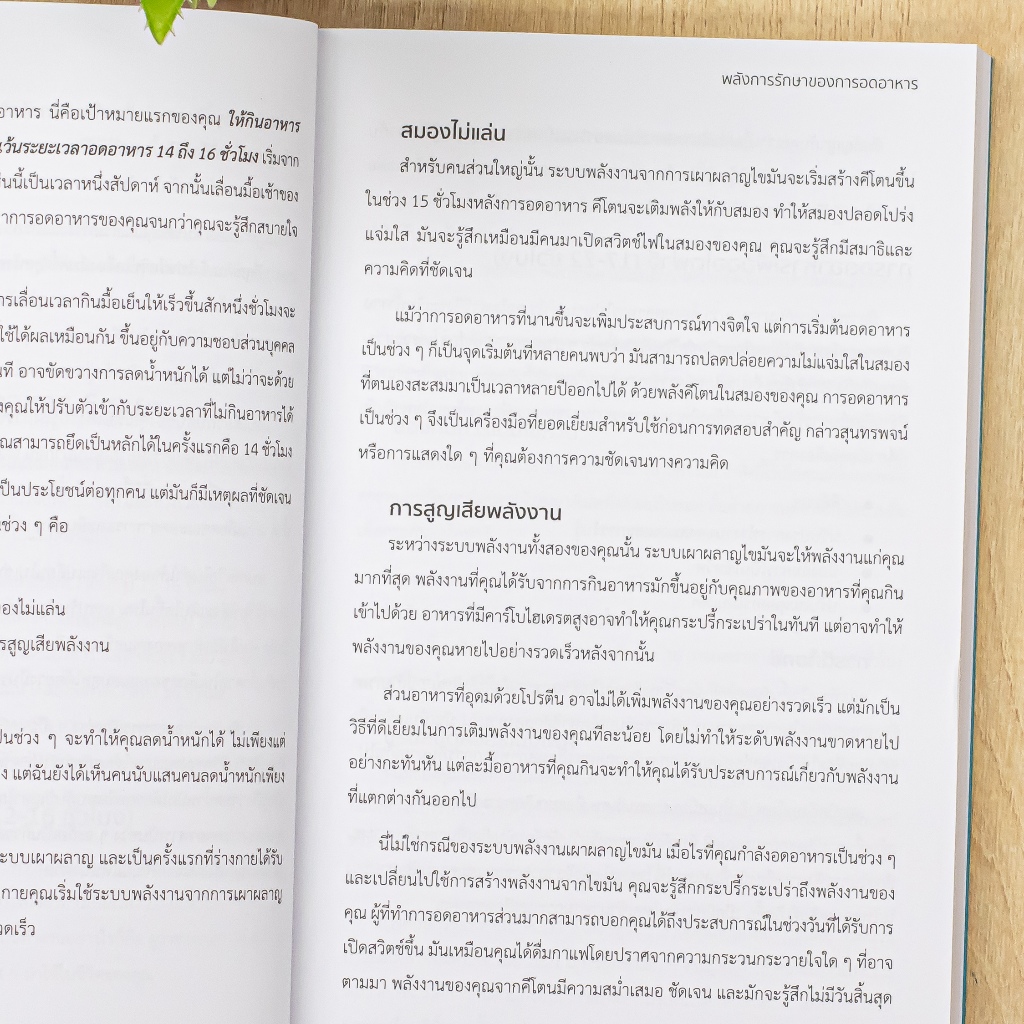 อาหาร นี่คือเป้าหมายแรกของคุณ ให้กินอาหาร
เว้นระยะเวลาอดอาหาร 14 ถึง 16 ชั่วโมง เริ่มจาก
นี้เป็นเวลาหนึ่งสัปดาห์ จากนั้นเลื่อนมื้อเช้าของ
การอดอาหารของคุณจนกว่าคุณจะรู้สึกสบายใจ
การเลื่อนเวลากินมื้อเย็นให้เร็วขึ้นสักหนึ่งชั่วโมงจะ
ใช้ได้ผลเหมือนกัน ขึ้นอยู่กับความชอบส่วนบุคคล
อาจขัดขวางการลดน้ำหนักได้ แต่ไม่ว่าจะด้วย
คุณให้ปรับตัวเข้ากับระยะเวลาที่ไม่กินอาหารได้
คุณสามารถยึดเป็นหลักได้ในครั้งแรกคือ 14 ชั่วโมง
เป็นประโยชน์ต่อทุกคน แต่มันก็มีเหตุผลที่ชัดเจน
ช่วง ๆ คือ
สมองไม่แล่น
การสูญเสียพลังงาน
เป็นช่วง ๆ จะทำให้คุณลดน้ำหนักได้ ไม่เพียงแต่
แต่ฉันยังได้เห็นคนนับแสนคนลดน้ำหนักเพียง
ระบบเผาผลาญ และเป็นครั้งแรกที่ร่างกายได้รับ
กายคุณเริ่มใช้ระบบพลังงานจากการเผาผลาญ
รวดเร็ว
พลังการรักษาของการอดอาหาร
สมองไม่แล่น
สำหรับคนส่วนใหญ่นั้น ระบบพลังงานจากการเผาผลาญไขมันจะเริ่มสร้างคีโตนขึ้น
ในช่วง 15 ชั่วโมงหลังการอดอาหาร คีโตนจะเติมพลังให้กับสมอง ทำให้สมองปลอดโปร่ง
แจ่มใส มันจะรู้สึกเหมือนมีคนมาเปิดสวิตช์ไฟในสมองของคุณ คุณจะรู้สึกมีสมาธิและ
ความคิดที่ชัดเจน
แม้ว่าการอดอาหารที่นานขึ้นจะเพิ่มประสบการณ์ทางจิตใจ แต่การเริ่มต้นอดอาหาร
เป็นช่วง ๆ ก็เป็นจุดเริ่มต้นที่หลายคนพบว่า มันสามารถปลดปล่อยความไม่แจ่มใสในสมอง
ที่ตนเองสะสมมาเป็นเวลาหลายปีออกไปได้ ด้วยพลังคีโตนในสมองของคุณ การอดอาหาร
เป็นช่วง ๆ จึงเป็นเครื่องมือที่ยอดเยี่ยมสำหรับใช้ก่อนการทดสอบสำคัญ กล่าวสุนทรพจน์
หรือการแสดงใด ๆ ที่คุณต้องการความชัดเจนทางความคิด
การสูญเสียพลังงาน
ระหว่างระบบพลังงานทั้งสองของคุณนั้น ระบบเผาผลาญไขมันจะให้พลังงานแก่คุณ
มากที่สุด พลังงานที่คุณได้รับจากการกินอาหารมักขึ้นอยู่กับคุณภาพของอาหารที่คุณกิน
เข้าไปด้วย อาหารที่มีคาร์โบไฮเดรตสูงอาจทำให้คุณกระปรี้กระเปร่าในทันที แต่อาจทำให้
พลังงานของคุณหายไปอย่างรวดเร็วหลังจากนั้น
ส่วนอาหารที่อุดมด้วยโปรตีน อาจไม่ได้เพิ่มพลังงานของคุณอย่างรวดเร็ว แต่มักเป็น
วิธีที่ดีเยี่ยมในการเติมพลังงานของคุณทีละน้อย โดยไม่ทำให้ระดับพลังงานขาดหายไป
อย่างกะทันหัน แต่ละมื้ออาหารที่คุณกินจะทำให้คุณได้รับประสบการณ์เกี่ยวกับพลังงาน
ที่แตกต่างกันออกไป
นี่ไม่ใช่กรณีของระบบพลังงานเผาผลาญไขมัน เมื่อไรที่คุณกำลังอดอาหารเป็นช่วง ๆ
และเปลี่ยนไปใช้การสร้างพลังงานจากไขมัน คุณจะรู้สึกกระปรี้กระเปร่าถึงพลังงานของ
คุณ ผู้ที่ทำการอดอาหารส่วนมากสามารถบอกคุณได้ถึงประสบการณ์ในช่วงวันที่ได้รับการ
เปิดสวิตช์ขึ้น มันเหมือนคุณได้ดื่มกาแฟโดยปราศจากความกระวนกระวายใจใด ๆ ที่อาจ
ตามมา พลังงานของคุณจากคีโตนมีความสม่ำเสมอ ชัดเจน และมักจะรู้สึกไม่มีวันสิ้นสุด